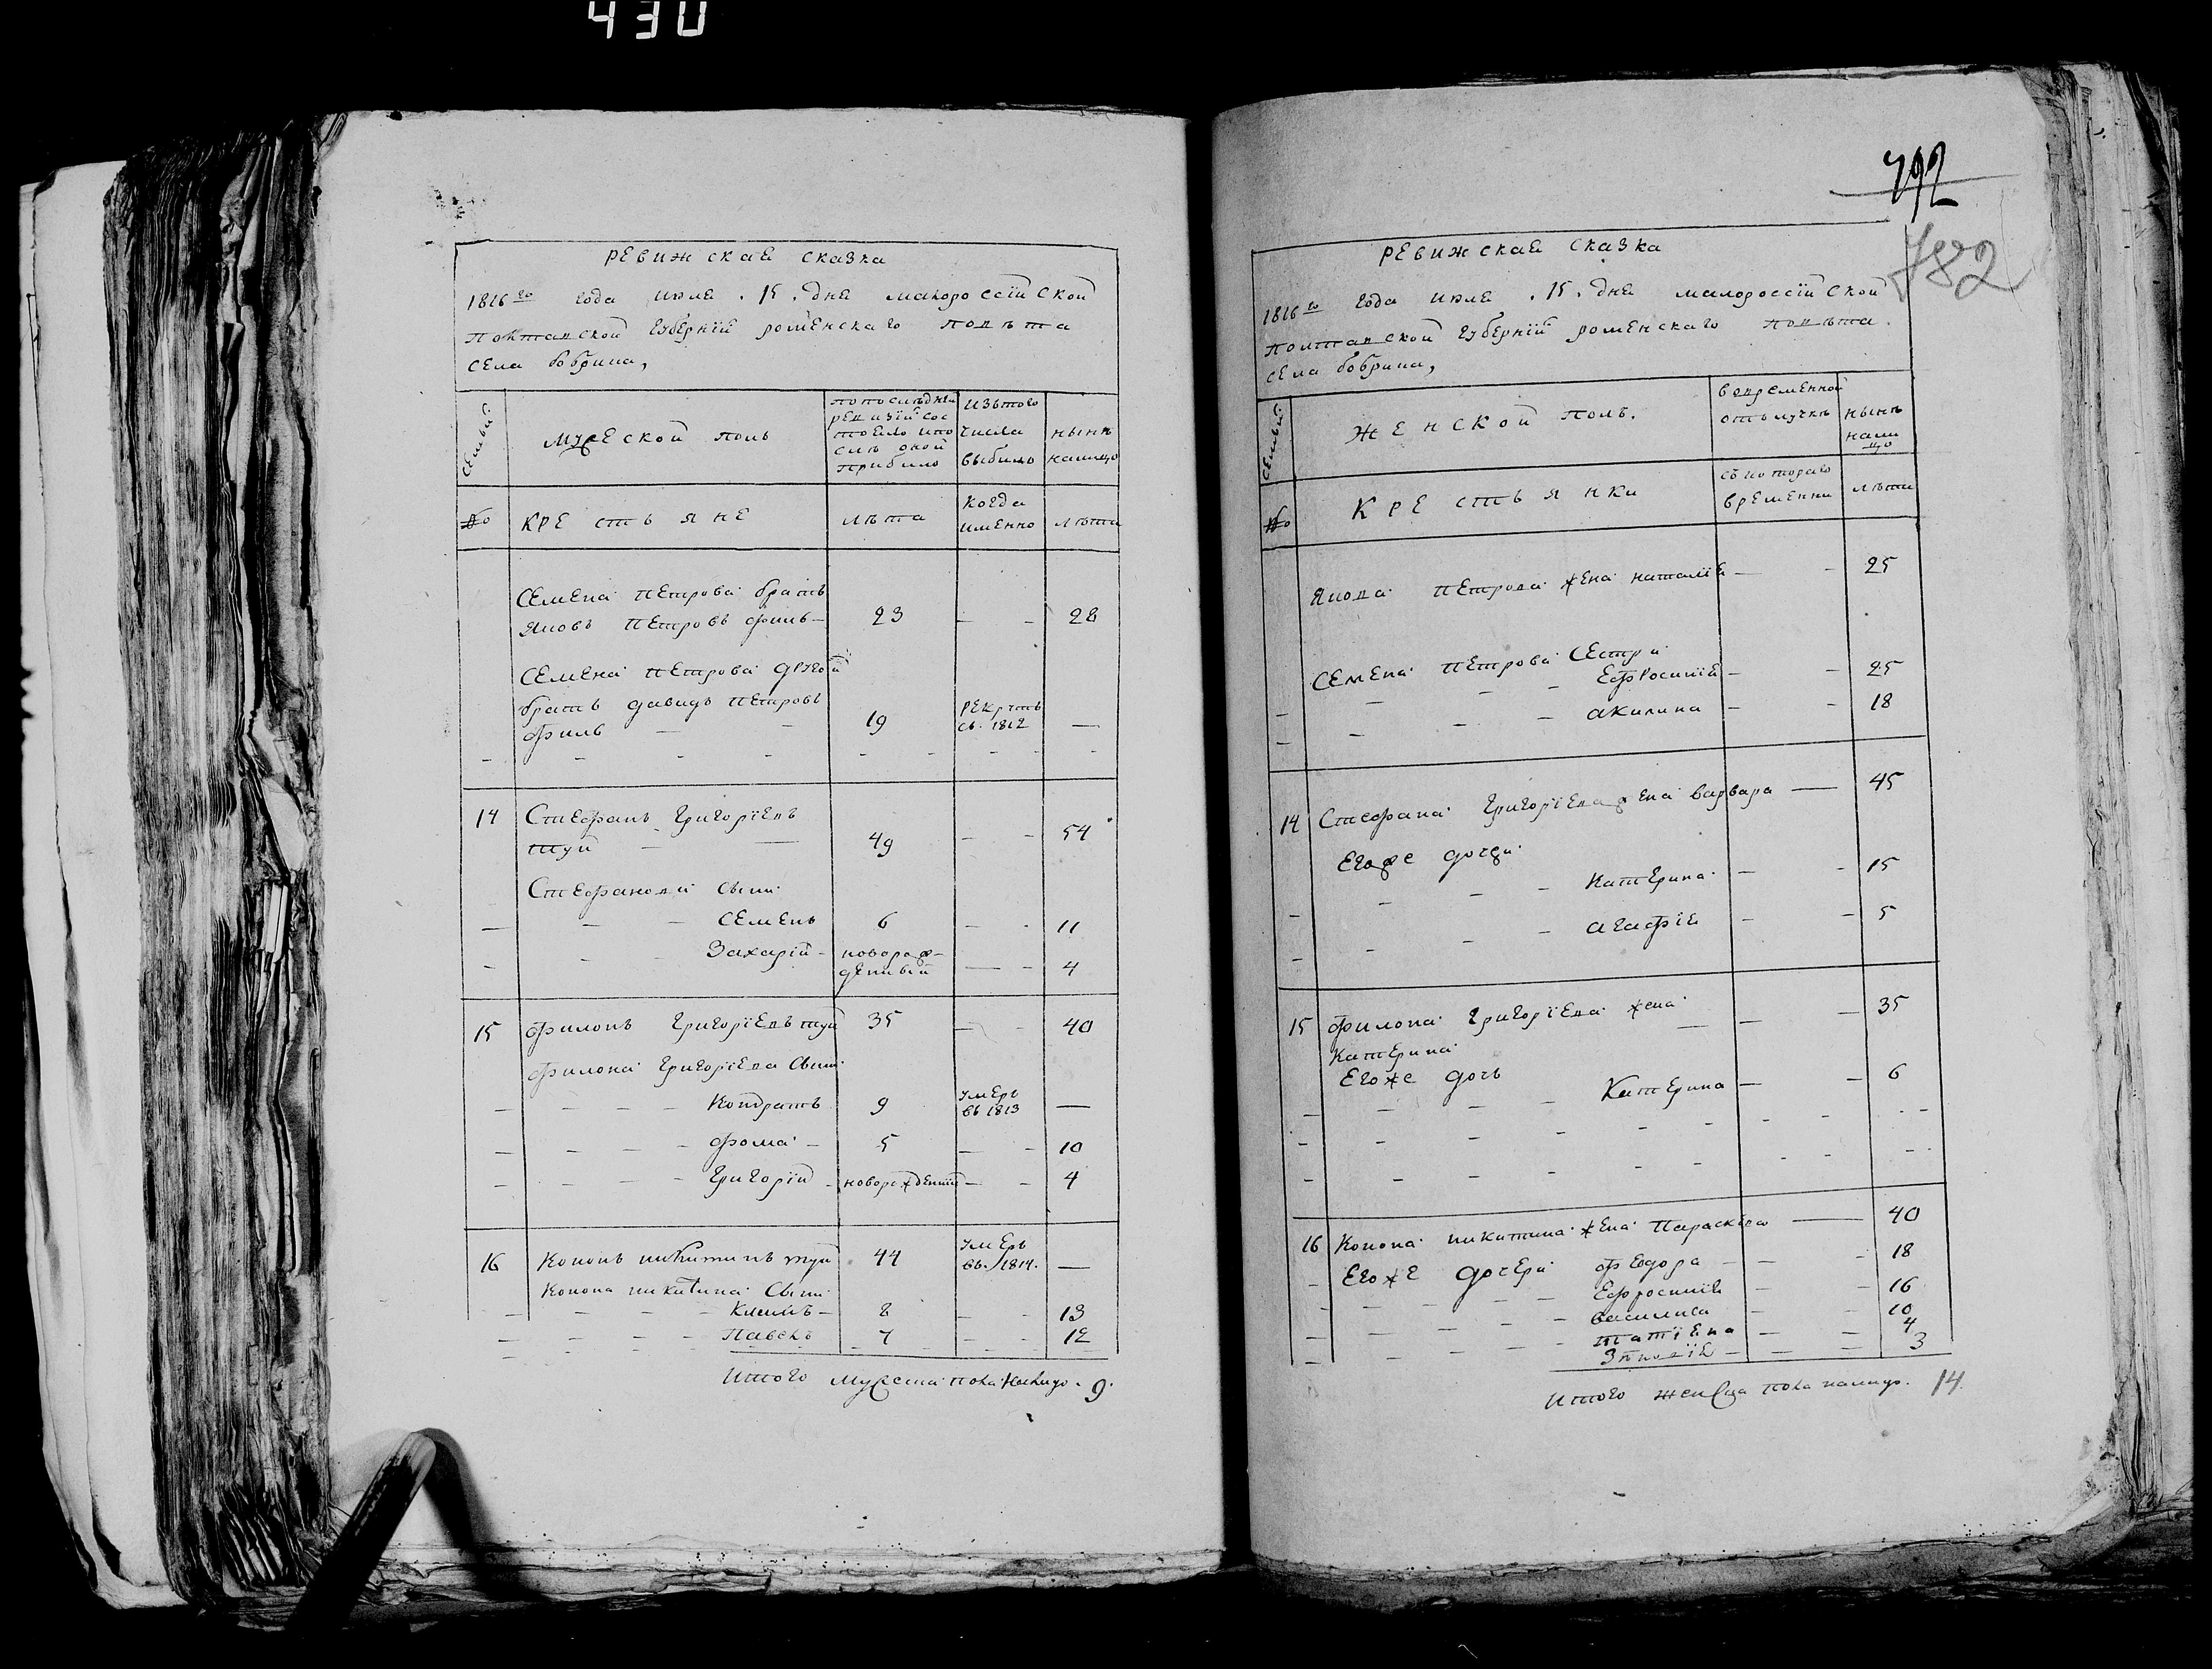 430
РЕВИЖСКАЕ СКАЗКА
1816го года июле . 15 . дне малороссїйской
полтавской губернїй роменскаго повѣта
села бобрика,
семьи
мужеской полъ
попослѣдней
ревизїй сос
тоело ипо
слѣ оной
прибило
изътого
числа
выбило
нынѣ
налицо
№
КРЕСТЬЯНЕ
лѣта
когда
именно
лѣта
Семена петрова братъ
Яковъ петровъ филь — 23 — - 28
Семена петрова другой
братъ давидъ петровъ
филь 19 рекрутъ
въ 1812 —
14 Стефанъ григорїевъ
туй 49 - - 54
Стефановы сыни
Семенъ 6 - - 11
Захарїй - новорож-
денный — - 4
15 филонъ григорїевъ туй 35 - - 40
филона григорїева сыни
кондратъ 9 умеръ
въ 1813 —
фома - 5 — - 10
григорїй - новорожденный — - 4
16 Кононъ никитинъ туй 44 умеръ
въ 1814. —
Конона никитина сыни
Климъ - 8 - - 13
Павелъ 7 - - 12
Итого мужеска пола налицо . 9.
792
782
РЕВИЖСКАЕ СКАЗКА
1816го года июле . 15 . дне малороссїйской
полтавской губернїй роменскаго повѣта
села бобрика,
семьи
ЖЕНСКОЙ полъ.
вовременной
отълучкѣ
нынѣ
нали
цо
№
КРЕСТЬЯНКИ
съкотораго
времени
лѣта
Якова петрова жена наталїе — - 25
Семена петрова сестри
Ефросинїе - - 25
акилина - - 18
14 Стефана григорїева жена варвара — 45
Егоже дочери
катерина - - 15
агафїе - - 5
15 филона григорїева жена — - 35
катерина
Егоже дочь
Катерина — - 6
16 Конона никитина жена Параскева — 40
Егоже дочери федора - - 18
Ефросинїе - - 16
василиса - - 10
татїена — - 4
Зѣновїе - — - 3
Итого женска пола налицо . 14.